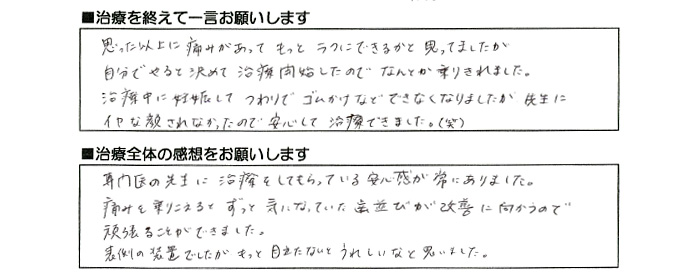 ■治療を終えて一言お願いします
思った以上に痛みがあって もっと ラクにできるかと思ってましたが
自分でやると決めて 治療開始したので なんとか乗りきれました。
治療中に妊娠して つわりで ゴムかけなどできなくなりましたが 先生に
イヤな顔されなかったので 安心して 治療できました。(笑)
■治療全体の感想をお願いします
専門医の先生に 治療をしてもらっている安心感が常にありました。
痛みを乗りこえると ずっと 気になっていた 歯並びが改善に向かうので
頑張ることができました。
表側の装置でしたが もっと 目立たないと うれしいなと思いました。